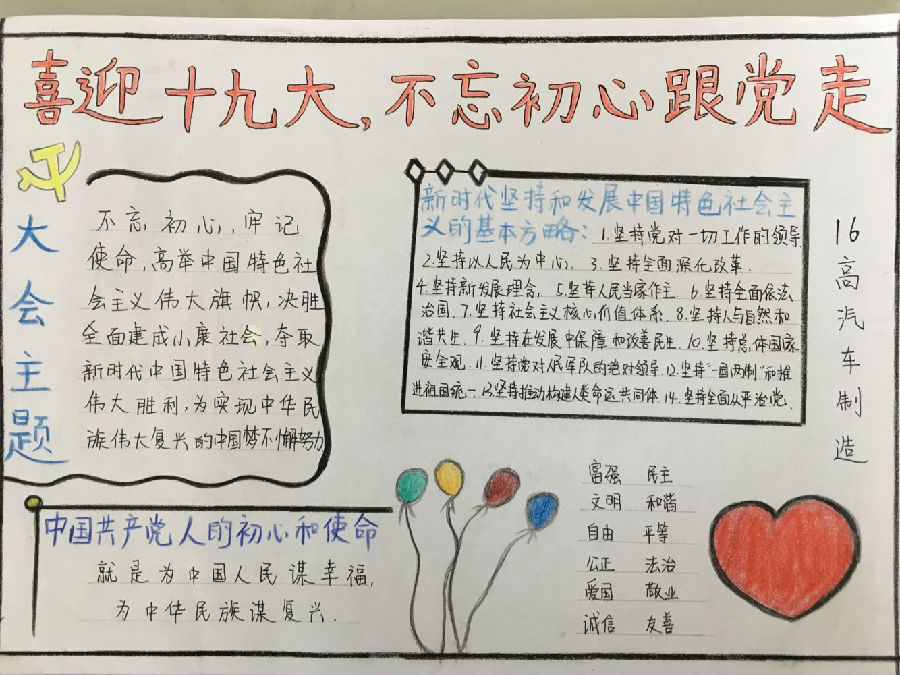 喜迎十九大,不忘初心跟党走
大会主题
不忘初心,牢记
使命,高举中国特色社
会主义伟大旗帜,决胜
全面建成小康社会,夺取
新时代中国特色社会主义
伟大胜利,为实现中华民
族伟大复兴的中国梦不懈努力
新时代坚持和发展中国特色社会主
义的基本方略:1.坚持党对一切工作的领导
2.坚持以人民为中心. 3.坚持全面深化改革.
4.坚持新发展理念. 5.坚持人民当家作主. 6.坚持全面依法
治国. 7.坚持社会主义核心价值体系. 8.坚持人与自然和
谐共生. 9.坚持在发展中保障和改善民生. 10.坚持总体国家
安全观. 11.坚持党对人民军队的绝对领导. 12.坚持"一国两制"和推
进祖国统一 13.坚持推动构建人类命运共同体 14.坚持全面从严治党.
16高汽车制造
中国共产党人的初心和使命
就是为中国人民谋幸福,
为中华民族谋复兴.
富强 民主
文明 和谐
自由 平等
公正 法治
爱国 敬业
诚信 友善